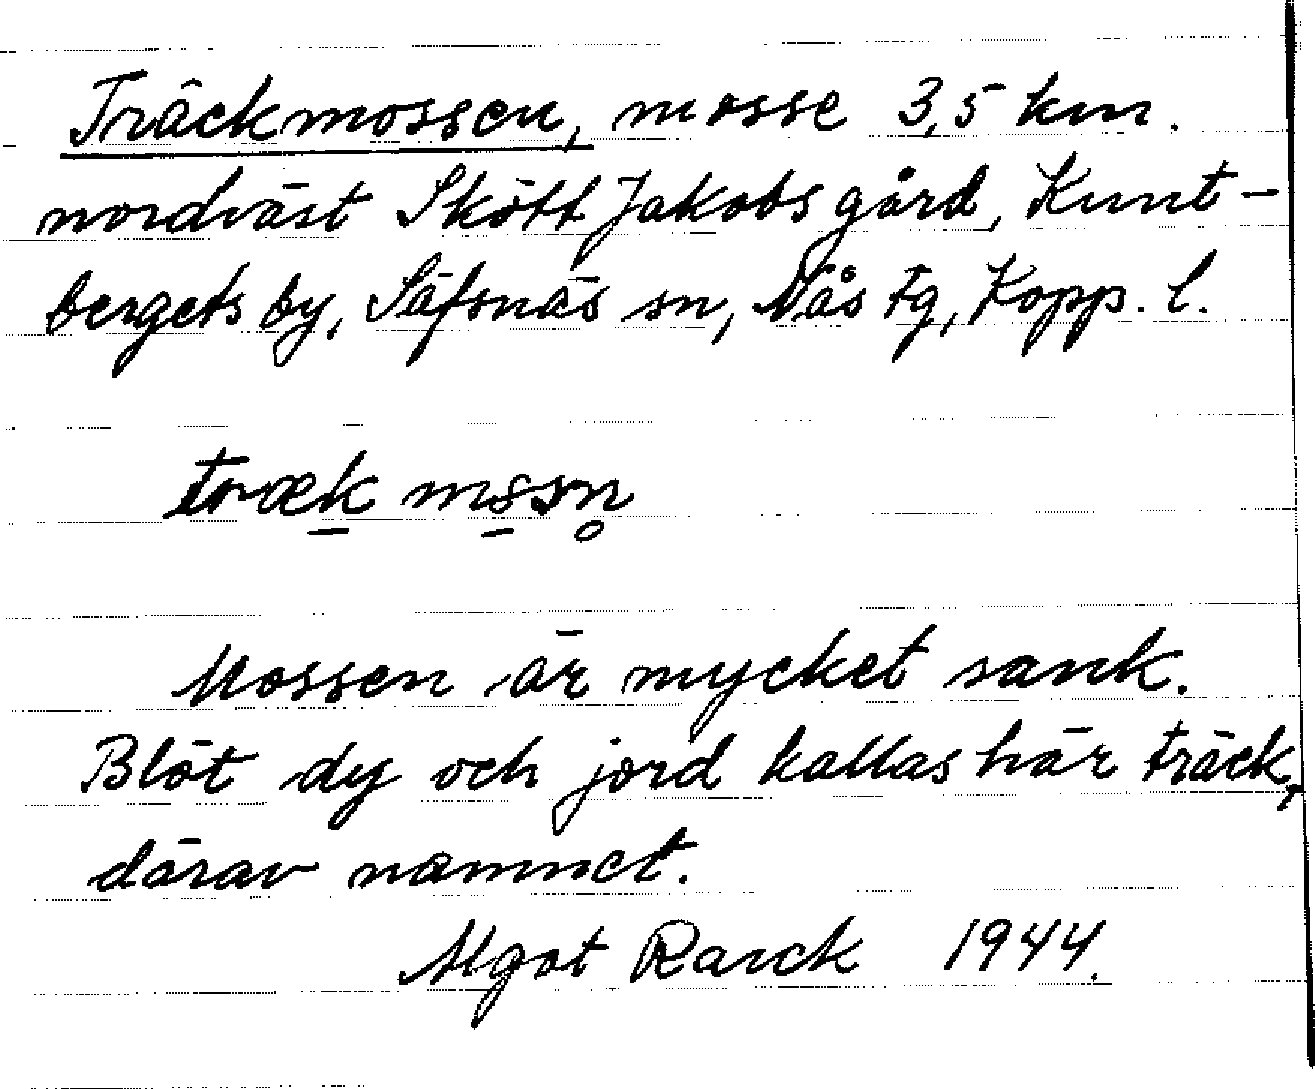 Träckmossen, mosse 3,5 km.
nordväst Skött Jakobsgård, Kunt-
bergets by, Säfsnäs sn, Nås tg, Kopp. l.
træk mssn̥
Mossen är mycket sank.
Blöt dy och jord kallas här träck,
därav namnet.
Algot Rarck 1944.